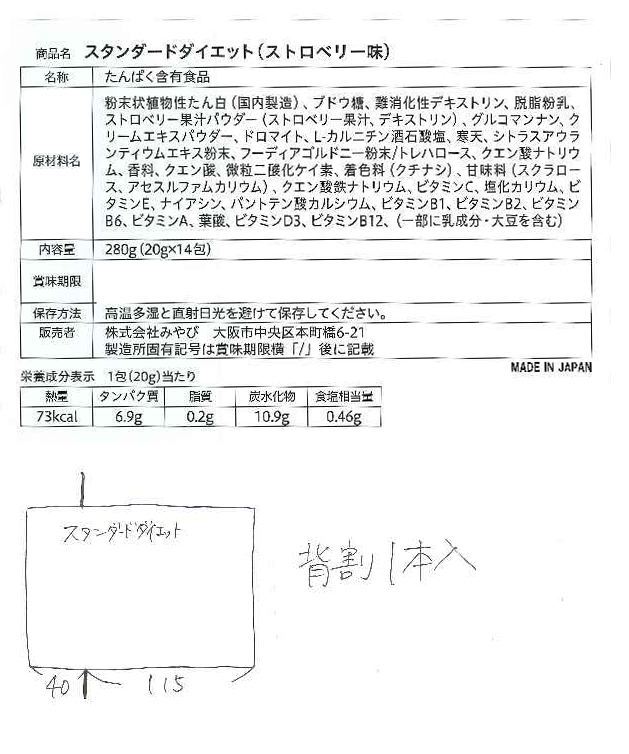 商品名 スタンダードダイエット(ストロベリー味)
名称 たんぱく含有食品
原材料名 粉末状植物性たん白(国内製造)、ブドウ糖、難消化性デキストリン、脱脂粉乳、
ストロベリー果汁パウダー(ストロベリー果汁、デキストリン)、グルコマンナン、ク
リームエキスパウダー、ドロマイト、L-カルニチン酒石酸塩、寒天、シトラスアウラ
ンティウムエキス粉末、フーディアゴルドニー粉末/トレハロース、クエン酸ナトリウ
ム、香料、クエン酸、微粒二酸化ケイ素、着色料(クチナシ)、甘味料(スクラロー
ス、アセスルファムカリウム)、クエン酸鉄ナトリウム、ビタミンC、塩化カリウム、ビ
タミンE、ナイアシン、パントテン酸カルシウム、ビタミンB1、ビタミンB2、ビタミン
B6、ビタミンA、葉酸、ビタミンD3、ビタミンB12、(一部に乳成分・大豆を含む)
内容量 280g(20g×14包)
賞味期限
保存方法 高温多湿と直射日光を避けて保存してください。
販売者 株式会社みやび 大阪市中央区本町橋6-21
製造所固有記号は賞味期限横「/」後に記載
MADE IN JAPAN
栄養成分表示 1包(20g)当たり
熱量 タンパク質 脂質 炭水化物 食塩相当量
73kcal 6.9g 0.2g 10.9g 0.46g
スタンダードダイエット
背割1本入
40 115